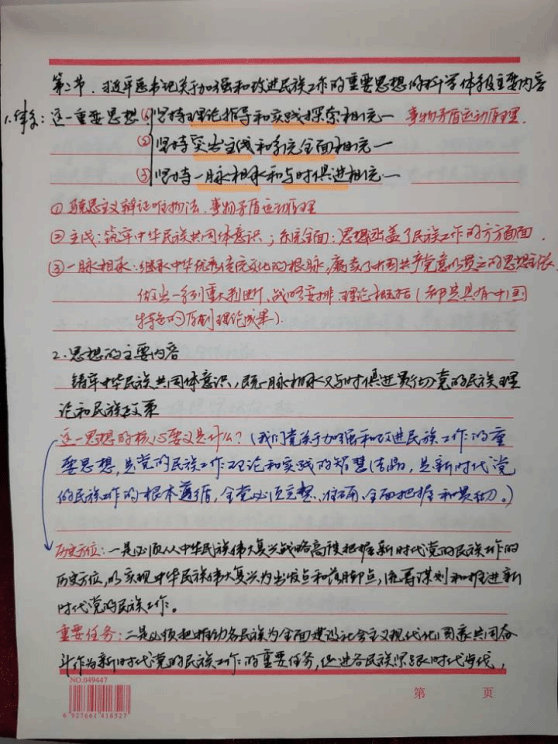 第二节、习近平总书记关于加强和改进民族工作的重要思想的科学体系主要内容
1.体系：这一重要思想 ①坚持理论指导和实践探索相统一 事物矛盾运动原理.
②坚持突出主线和系统全面相统一
③坚持一脉相承和与时俱进相统一
①马克思主义辩证唯物法、事物矛盾运动原理
②主线：铸牢中华民族共同体意识；系统全面：思想涵盖了民族工作的方方面面.
③一脉相承：继承中华优秀传统文化的根脉，赓续了中国共产党意以贯之的思想主张、
做出一系列重大判断、战略安排、理论概括（都是具有中国
特色的原创理论成果）.
2.思想的主要内容
铸牢中华民族共同体意识，既一脉相承又与时俱进贯彻党的民族理
论和民族政策
这一思想的核心要义是什么？（我们党关于加强和改进民族工作的重
要思想，是党的民族工作理论和实践的智慧结晶，是新时代党
的民族工作的根本遵循，全党必须完整、准确、全面把握和贯彻。）
历史方位：一是必须从中华民族伟大复兴战略高度把握新时代党的民族工作的
历史方位，以实现中华民族伟大复兴为出发点和落脚点，统筹谋划和推进新
时代党的民族工作。
重要任务：二是必须把推动各民族为全面建设社会主义现代化国家共同奋
斗作为新时代党的民族工作的重要任务，促进各民族紧跟时代步伐，
NO.949447
6 927681 416527
第 页